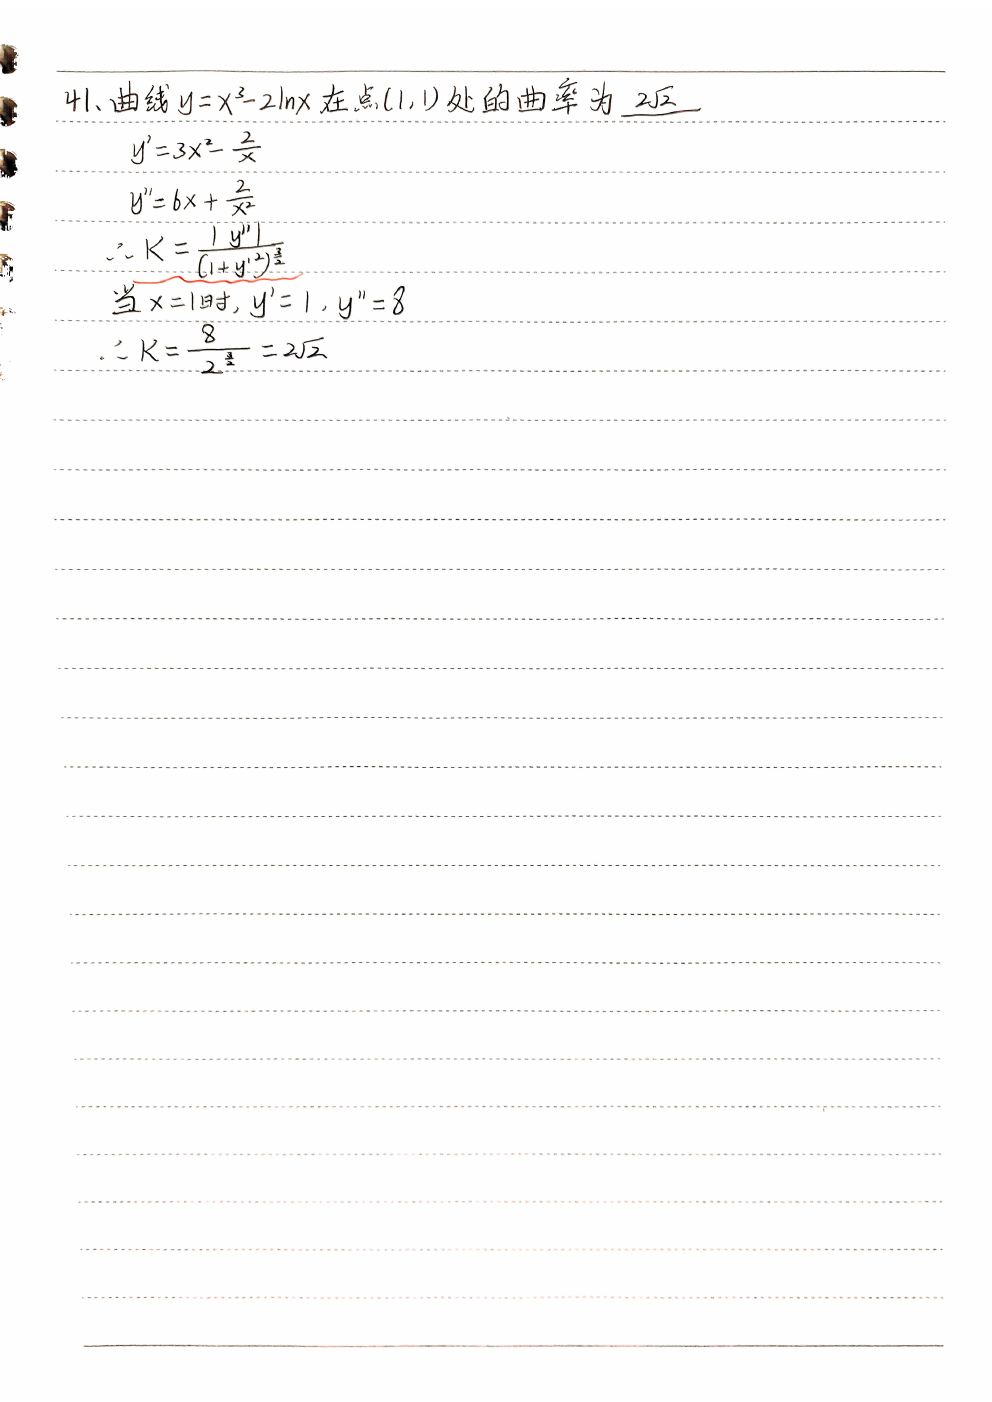 41、曲线 y=x³-2lnx 在点(1,1)处的曲率为 2√2
y'=3x²-2/x
y''=6x+2/x²
∴K=|y''|/(1+y'²)^(3/2)
当 x=1时, y'=1, y''=8
∴K=8/2^(3/2)=2√2